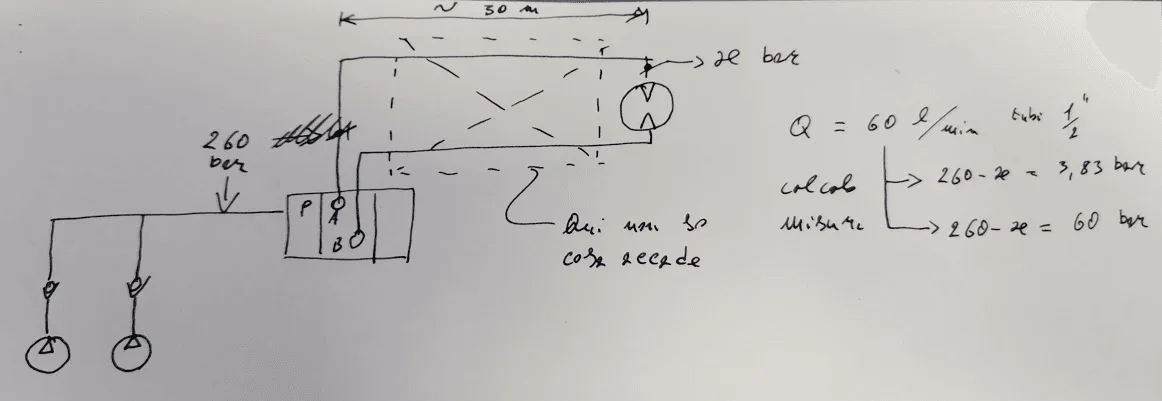 ~ 30 m
→ æ bar
260
bar
Q = 60 l/min tubi 1/2"
calcolo → 260-æ = 3,83 bar
misura → 260-æ = 60 bar
P
A
B
Qui non so
cosa accade